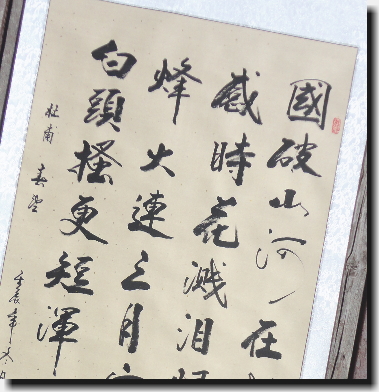 國破山河在
感時花濺泪
烽火連三月
白頭搔更短渾
杜甫 春望
壬辰年